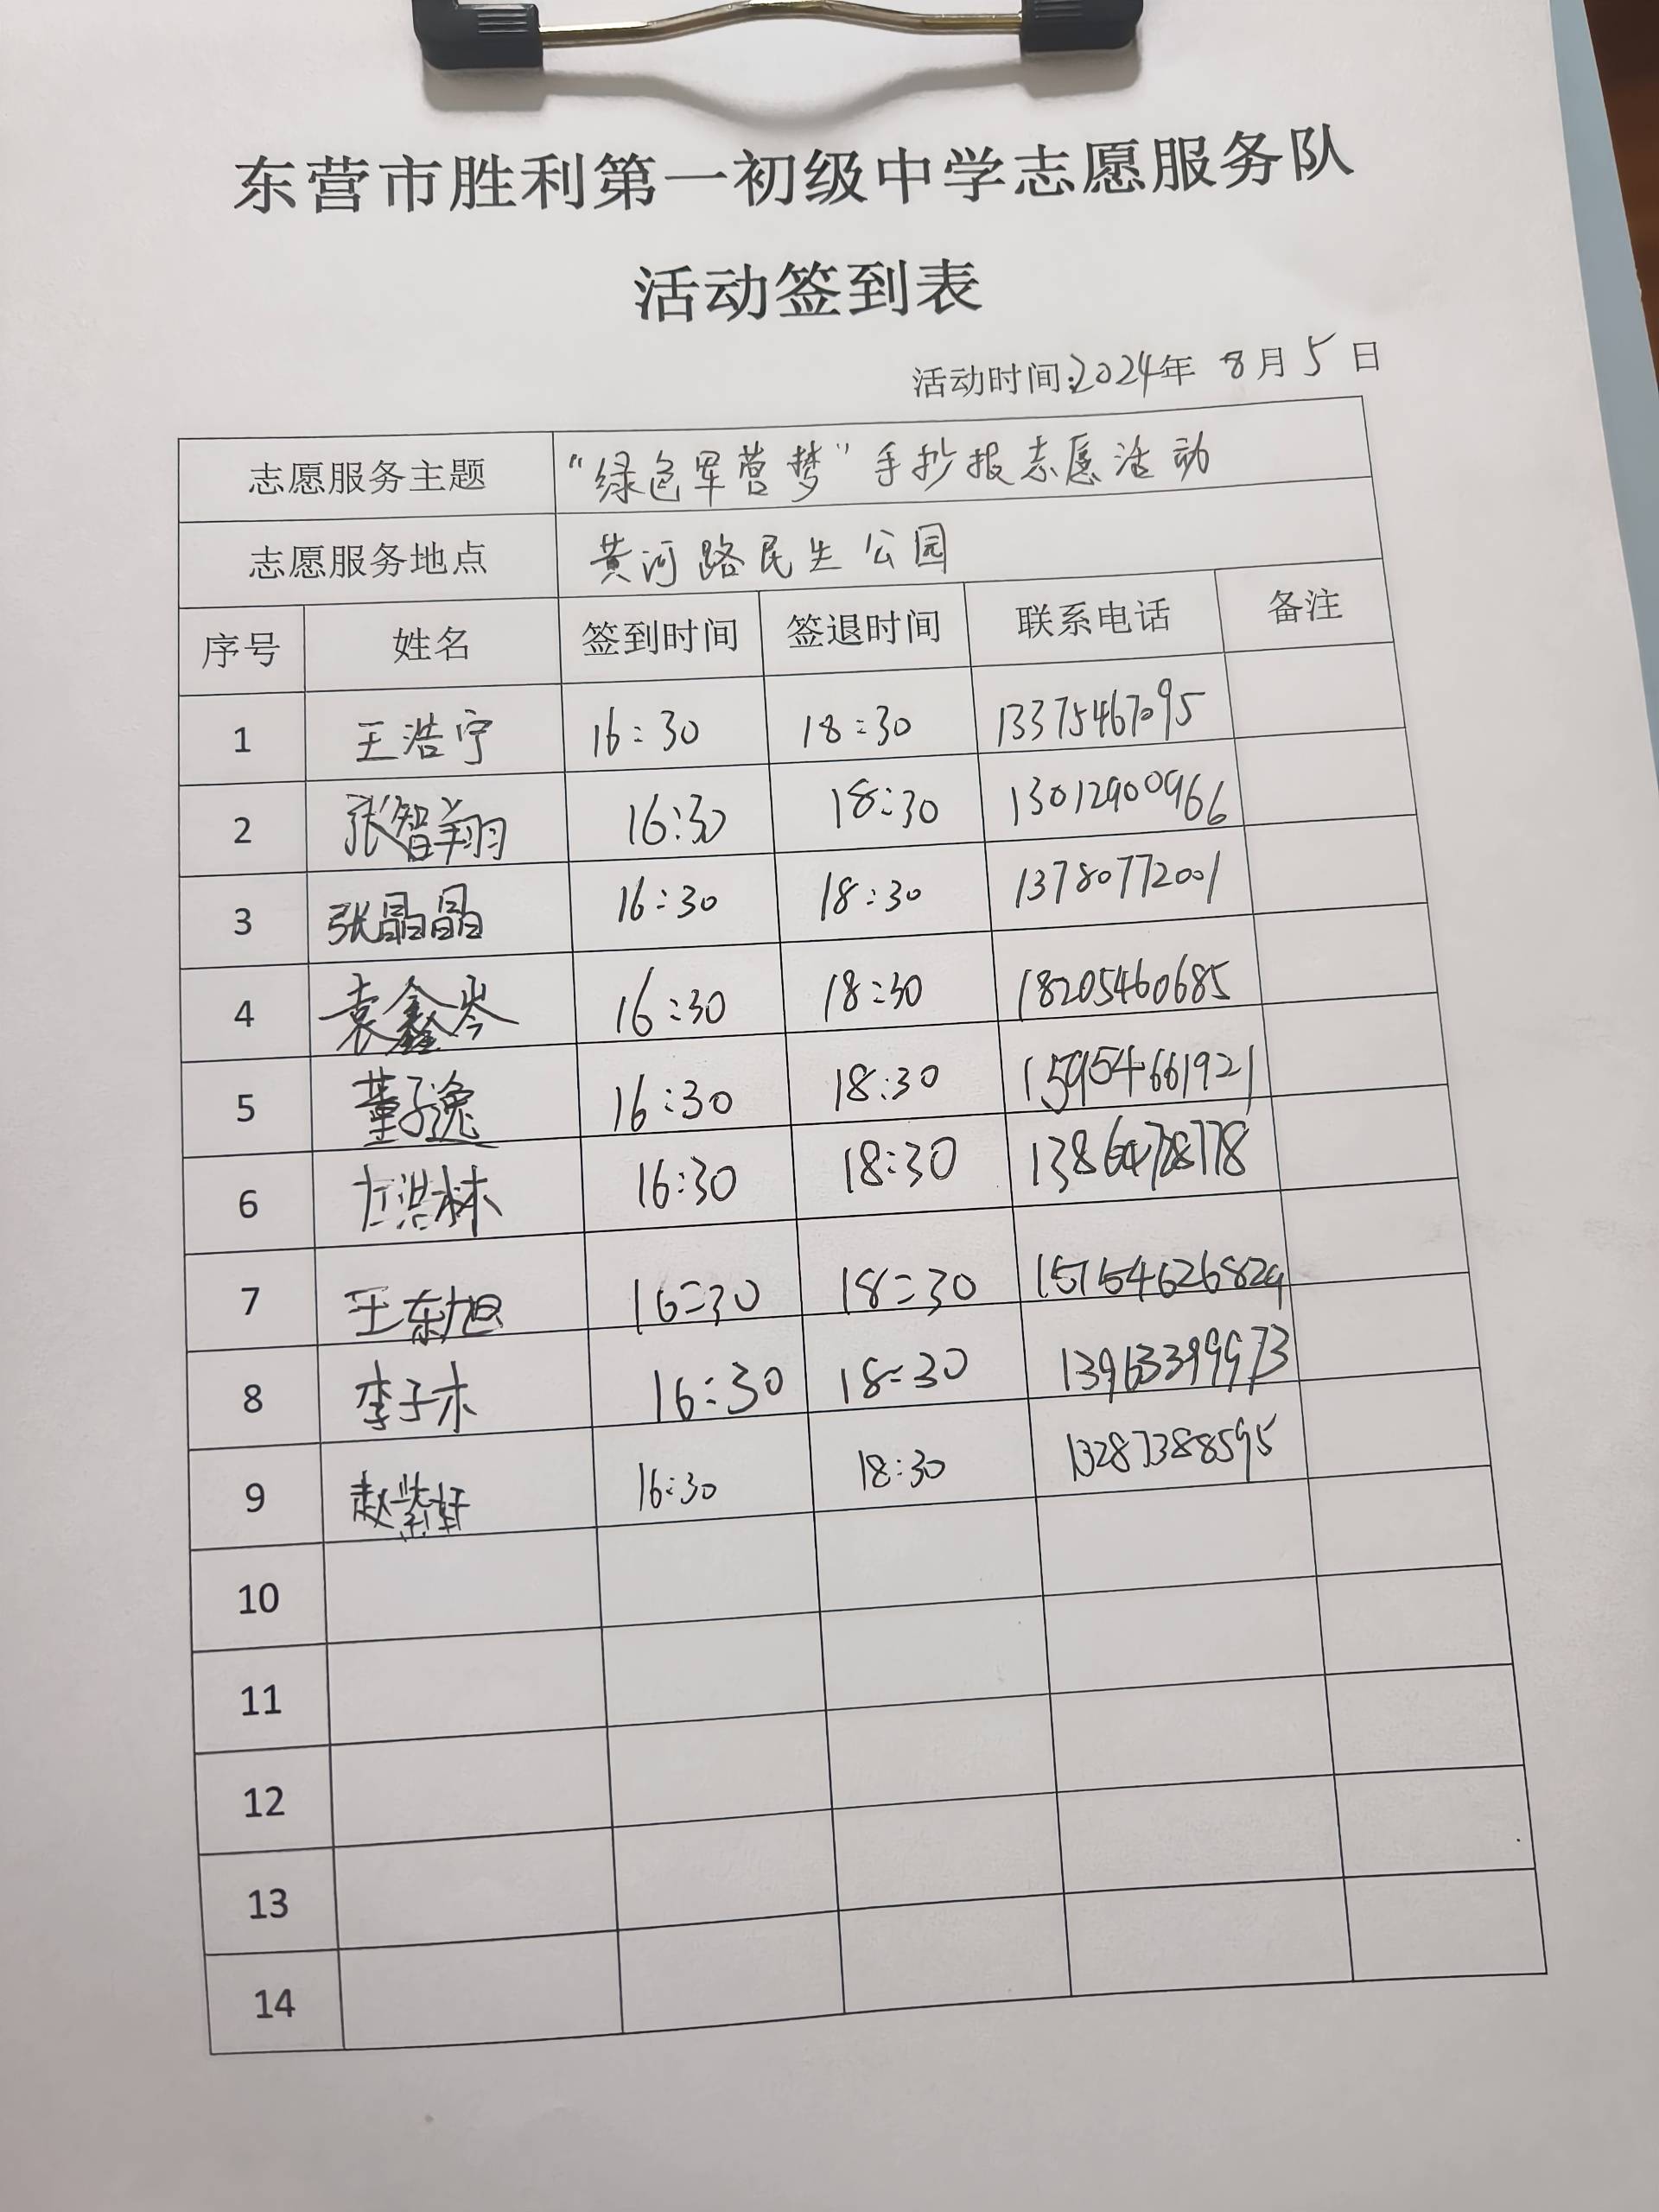 东营市胜利第一初级中学志愿服务队
活动签到表
活动时间:2024年 8月5日
志愿服务主题 “绿色军营梦”手抄报志愿活动
志愿服务地点 黄河路民生公园
序号 姓名 签到时间 签退时间 联系电话 备注
1 王浩宇 16:30 18:30 13375467095
2 张智翔 16:30 18:30 13012900966
3 张晶晶 16:30 18:30 13780772001
4 袁鑫岑 16:30 18:30 18205460685
5 董子逸 16:30 18:30 15954661921
6 16:30 18:30
7 王东旭 16:30 18:30
8 李子木 16:30 18:30 13963399973
9 赵紫轩 16:30 18:30 13287388595
10
11
12
13
14